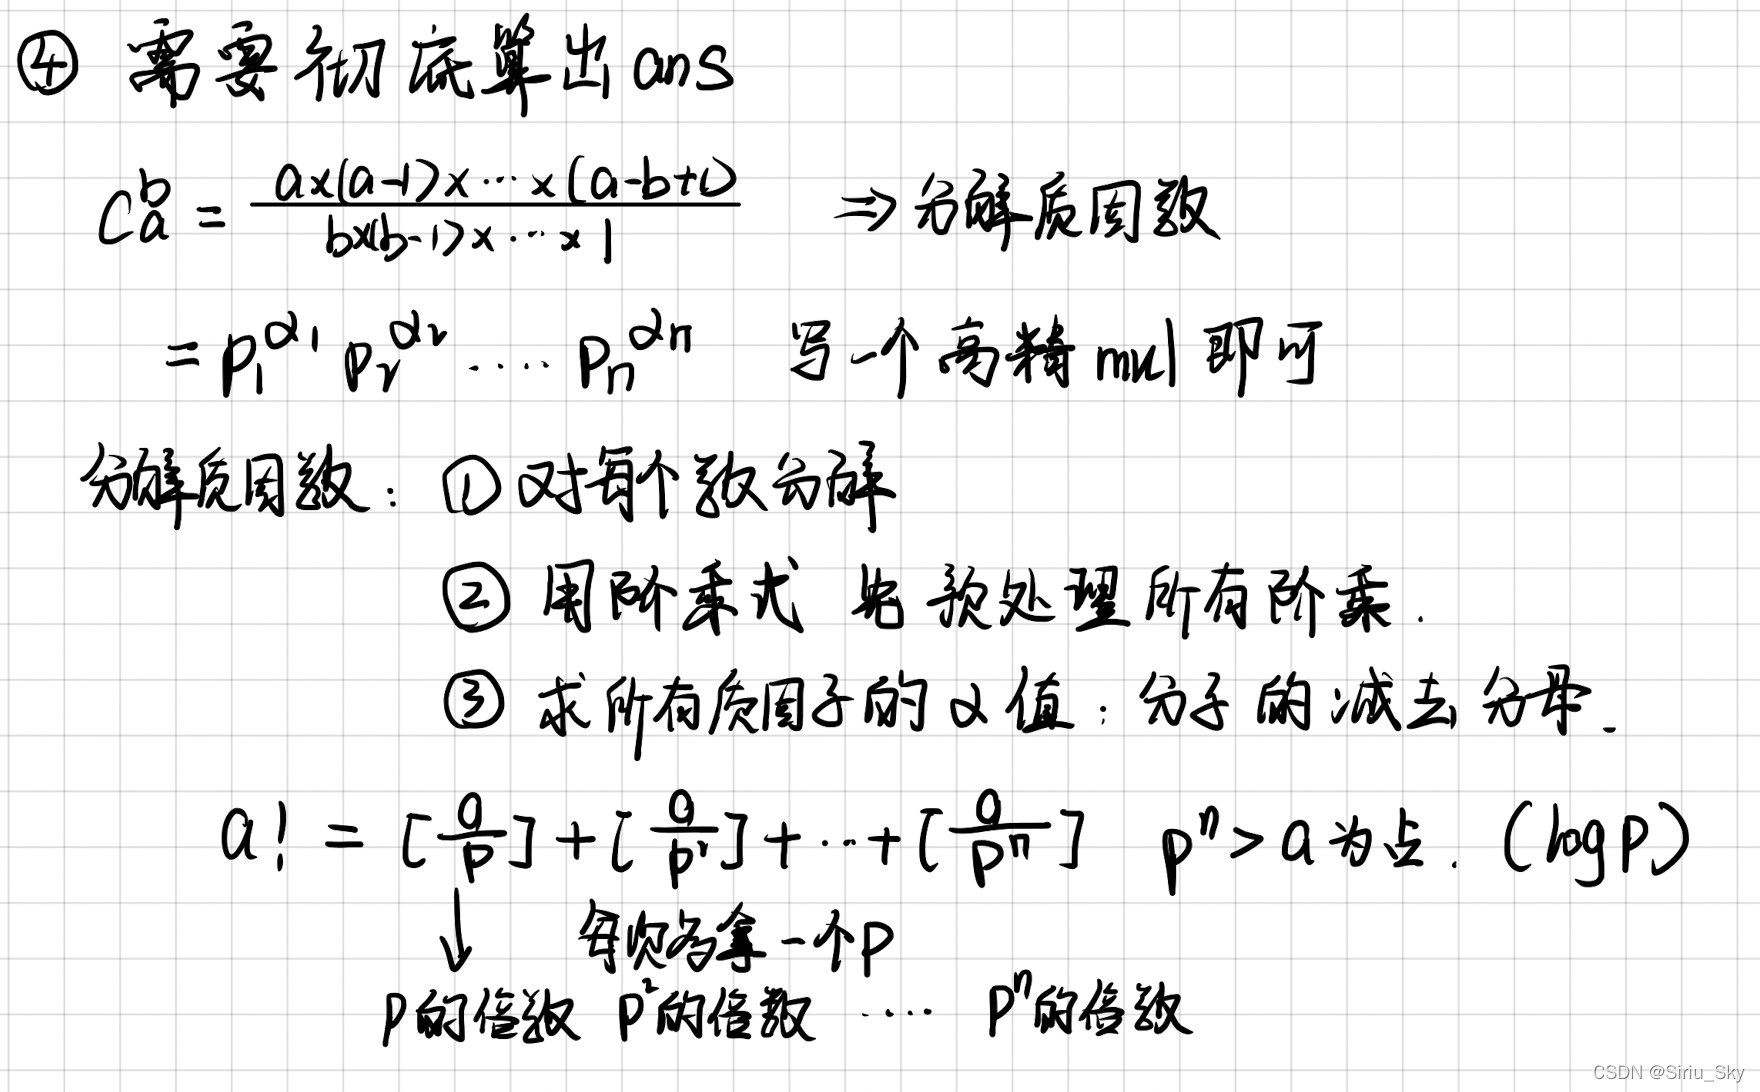 ④ 需要彻底算出ans
C_a^b = \frac{a×(a-1)×⋯×(a-b+1)}{b×(b-1)×⋯×1} ⇒ 分解质因数
= p_1^{α_1} p_2^{α_2} ⋯⋯ p_n^{α_n} 写一个高精mul即可
分解质因数：① 对每个数分解
② 用阶乘式 先预处理所有阶乘.
③ 求所有质因子的α值：分子的减去分母.
a! = [\frac{a}{p}] + [\frac{a}{p^2}] + ⋯ + [\frac{a}{p^n}] p^n > a 为止. (log p)
↓ 每次多拿一个p
p的倍数 p^2的倍数 ⋯⋯ p^n的倍数
CSDN @Siriu_Sky